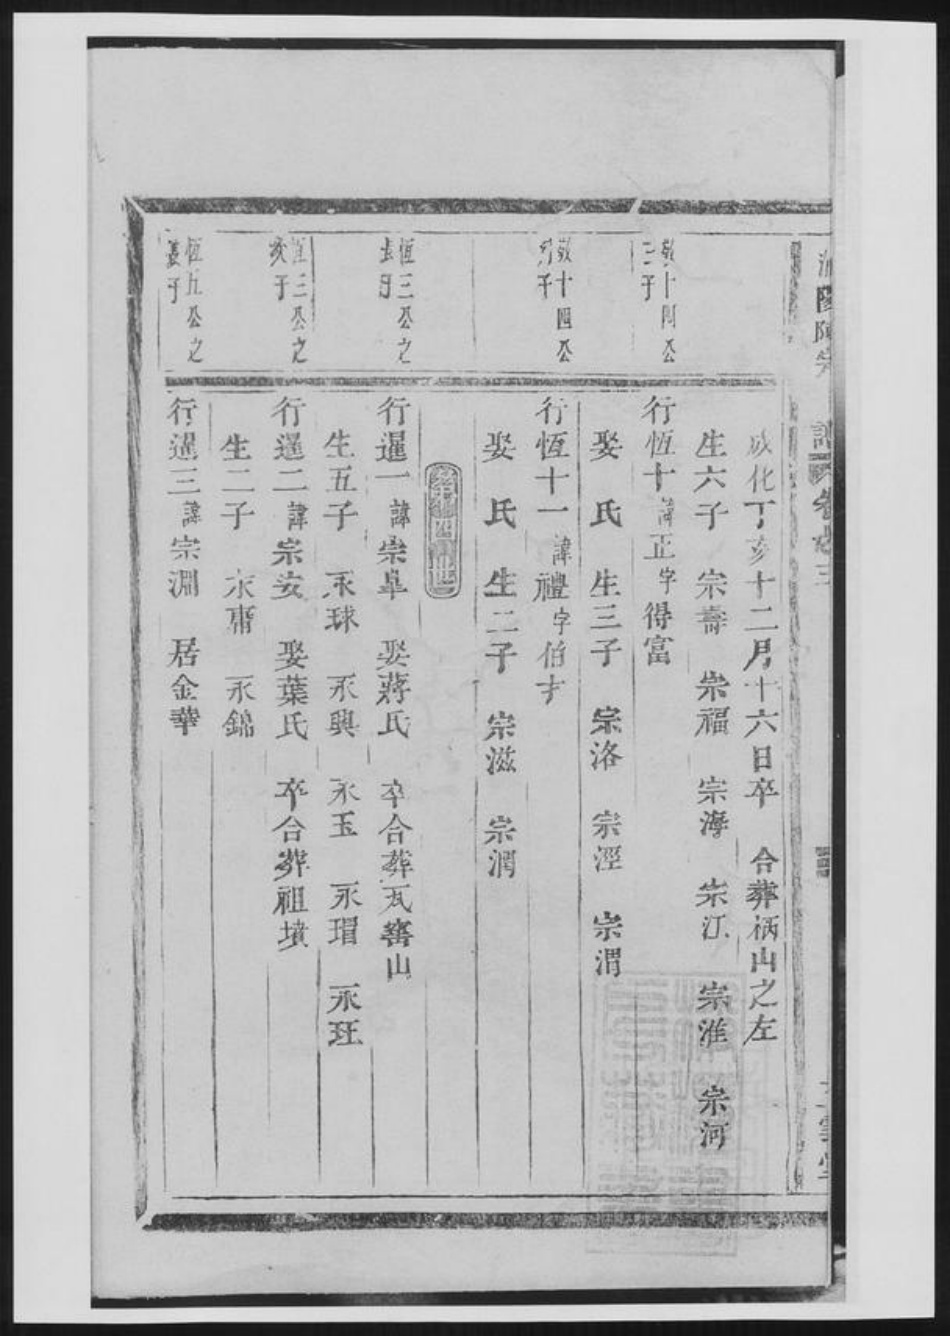 成化丁亥十二月十六日卒 合葬柄山之左
生六子 宗壽 崇福 宗海 宗江 宗淮 宗河
敬十四公
三子
行恆十諱正字得富
娶 氏 生三子 宗洛 宗涇 宗渭
敬十四公
行恆十一諱禮字伯才
娶 氏 生二子 宗滋 宗潤
恆三公之
長子
行暹一諱崇阜 娶蔣氏 卒合葬瓦窰山
生五子 永球 永興 永玉 永瑁 永玨
恆三公之
次子
行暹二諱宗安 娶葉氏 卒合葬祖墳
生二子 永庸 永錦
恆五公之
長子
行暹三諱宗淵 居金華